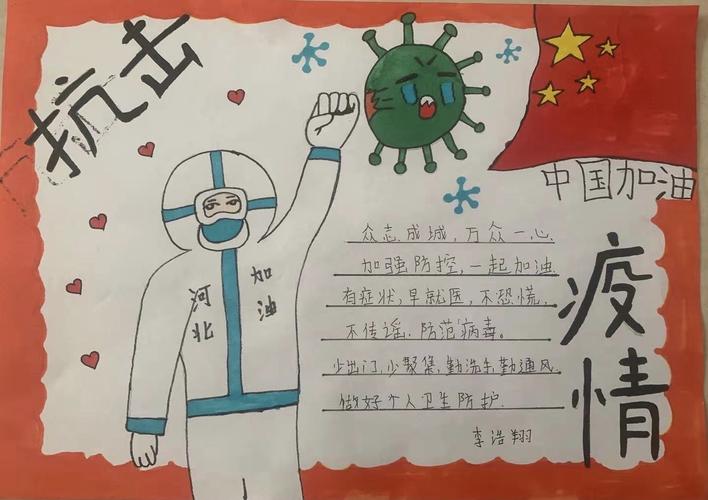 抗击
中国加油
疫情
河北
加油
众志成城，万众一心.
加强防控，一起加油.
有症状，早就医，不恐慌，
不传谣.防范病毒。
少出门，少聚集，勤洗手，勤通风.
做好个人卫生防护.
李浩翔